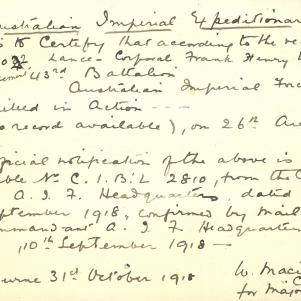 ustralian Imperial Expeditionar
is to Certify that according to the re
Lance-Corporal Frank Henry
43rd Battalion
Australian Imperial Forc
illed in Action ---
o record available), on 26th Au
ficial notification of the above is
ble No C.I.B.L 2810, from the
A.I.F. Headquarters, dated
eptember 1918, confirmed by mail
ommandant A.I.F. Headquarter
10th September 1918 —
urne 31st October 1918 W. Maci
for Major